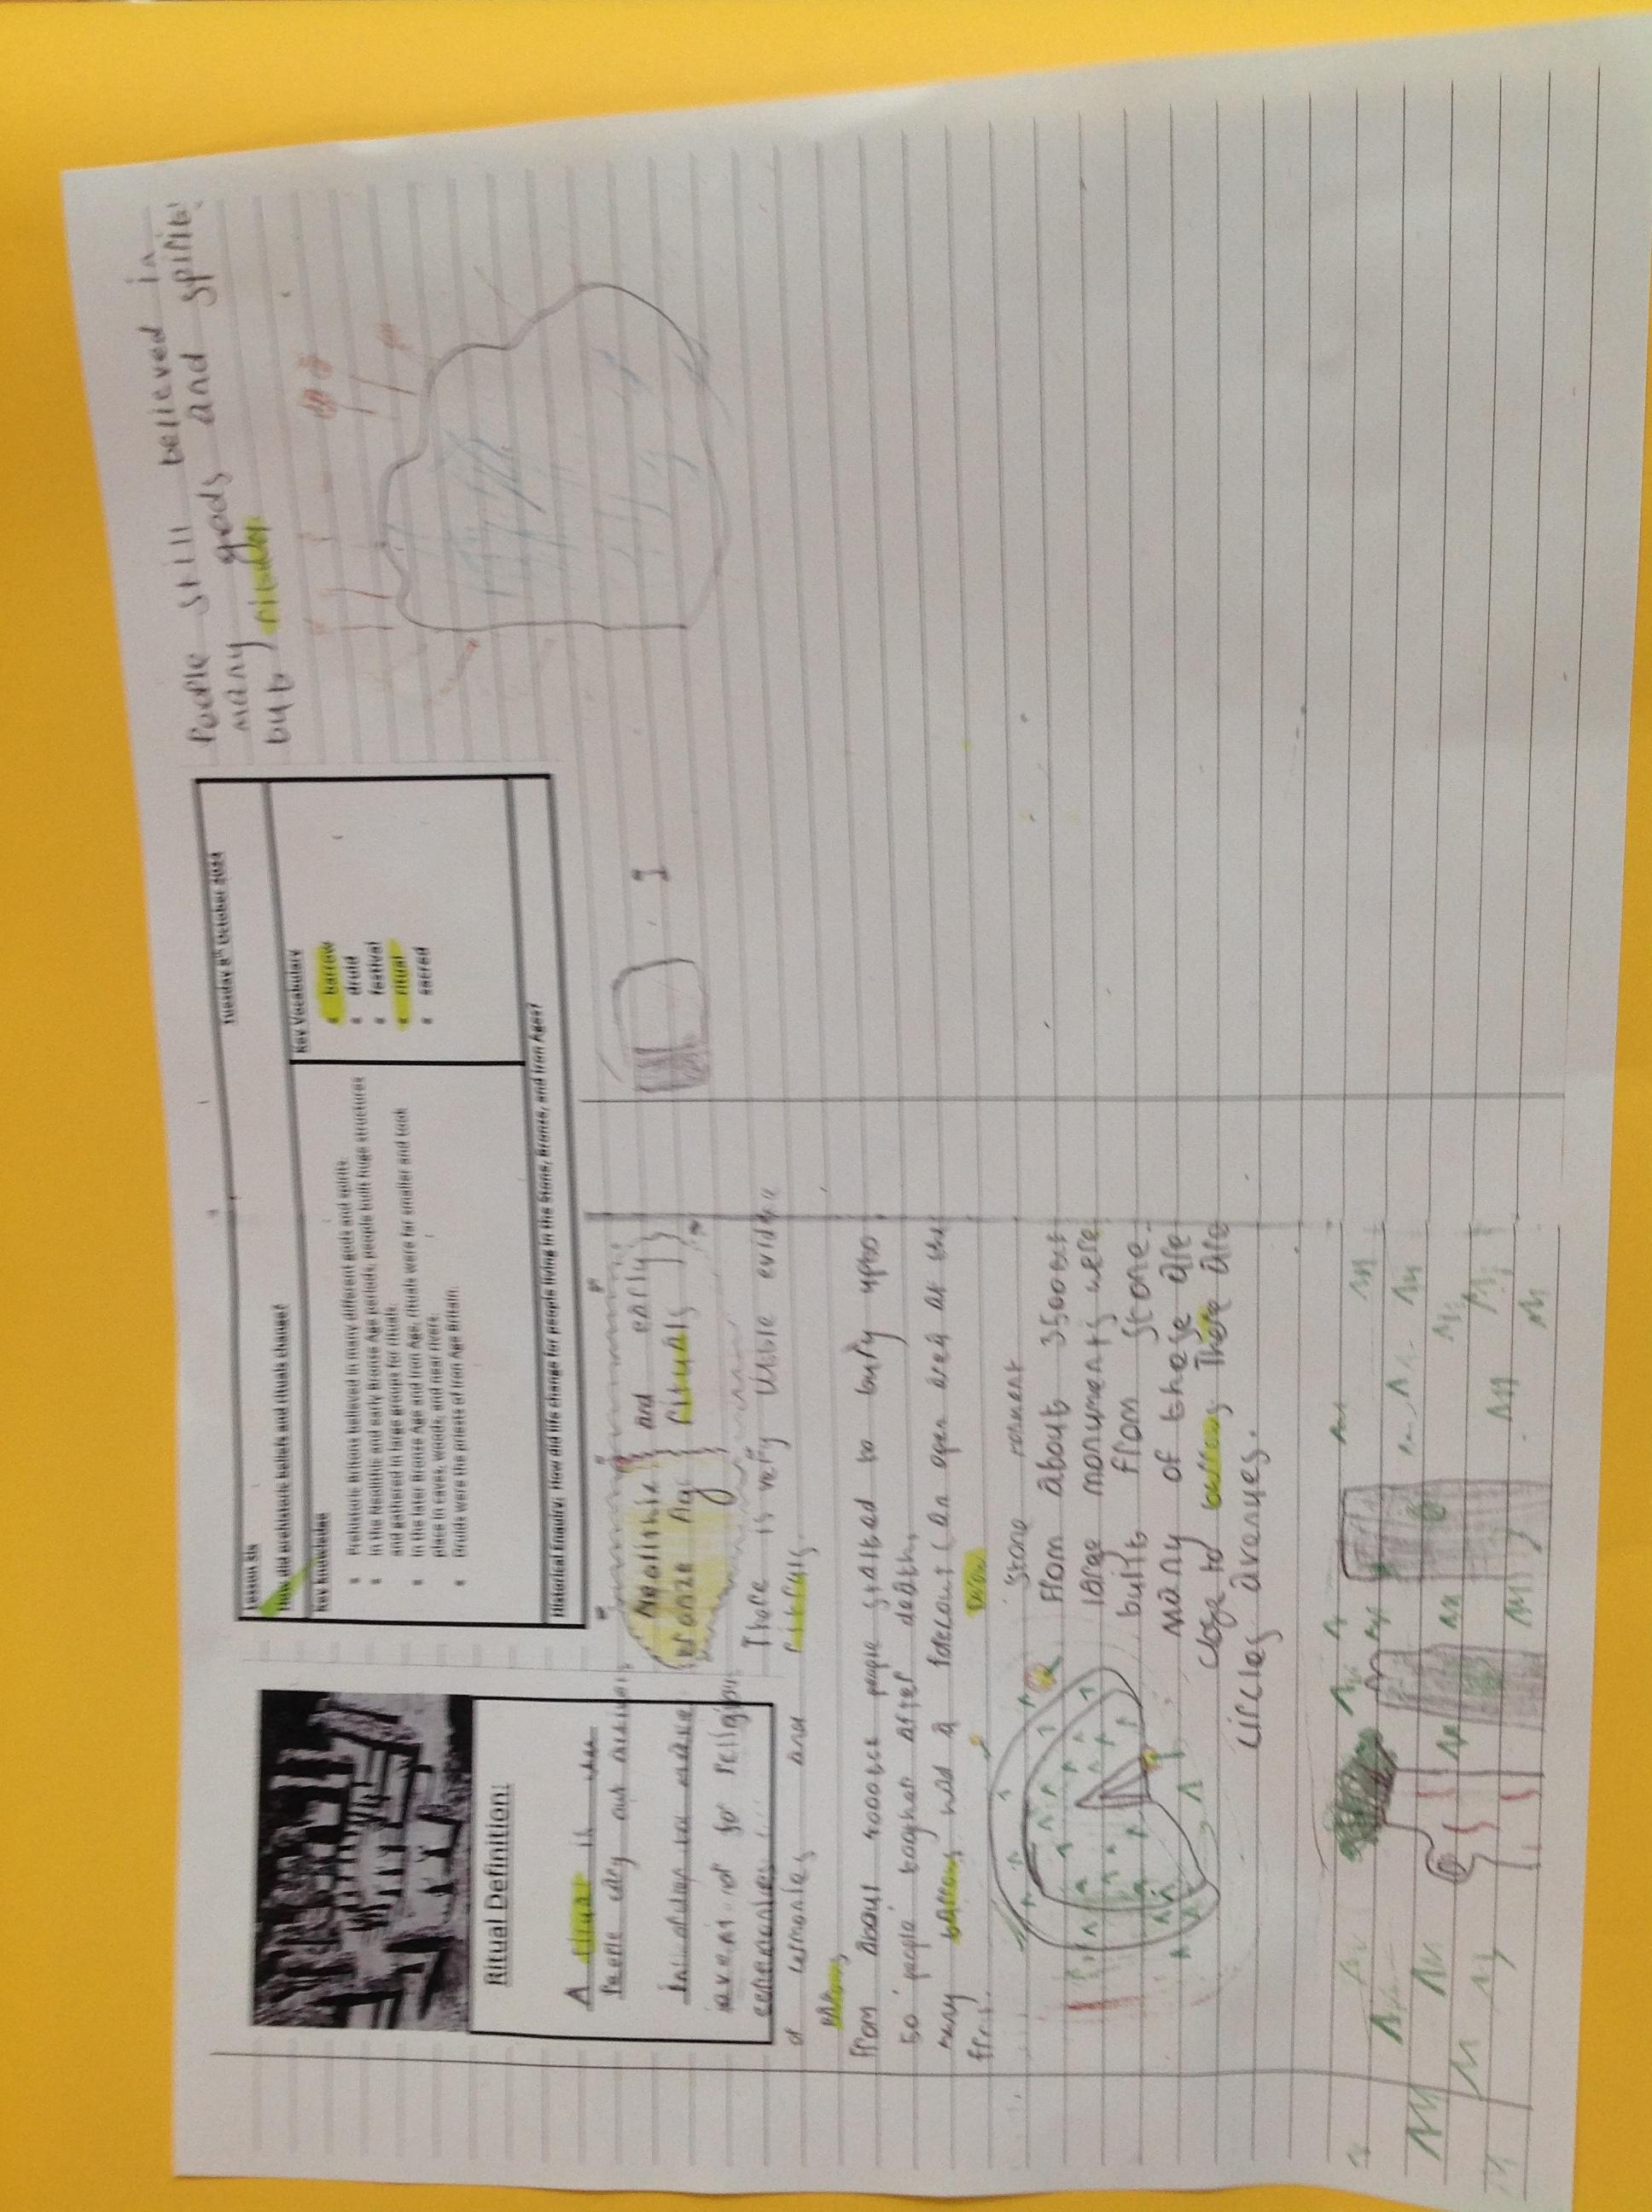 Tuesday 8th October 2024
Lesson Six
How did prehistoric beliefs and rituals change?
Key Knowledge
Prehistoric Britons believed in many different gods and spirits.
In the Neolithic and early Bronze Age periods, people built huge structures
and gathered in large groups for rituals.
In the later Bronze Age and Iron Age, rituals were far smaller and took
place in caves, woods, and near rivers.
Druids were the priests of Iron Age Britain.
Key Vocabulary
barrow
druid
festival
ritual
sacred
Historical Enquiry: How did life change for people living in the Stone, Bronze, and Iron Ages?
Ritual Definition:
A ritual is
People out
for religious
Neolithic and early
Bronze Age rituals
There is very little evidence
of and rituals.
From about 4000BCE people started to bury
so people together after death.
many barrows had a forecourt (an open area at the
front.
Stone
From about 3500BCE
large monuments were
built from stone.
many of these are
close to barrows There are
circles avenues.
People still believed in
many gods and spirits
but